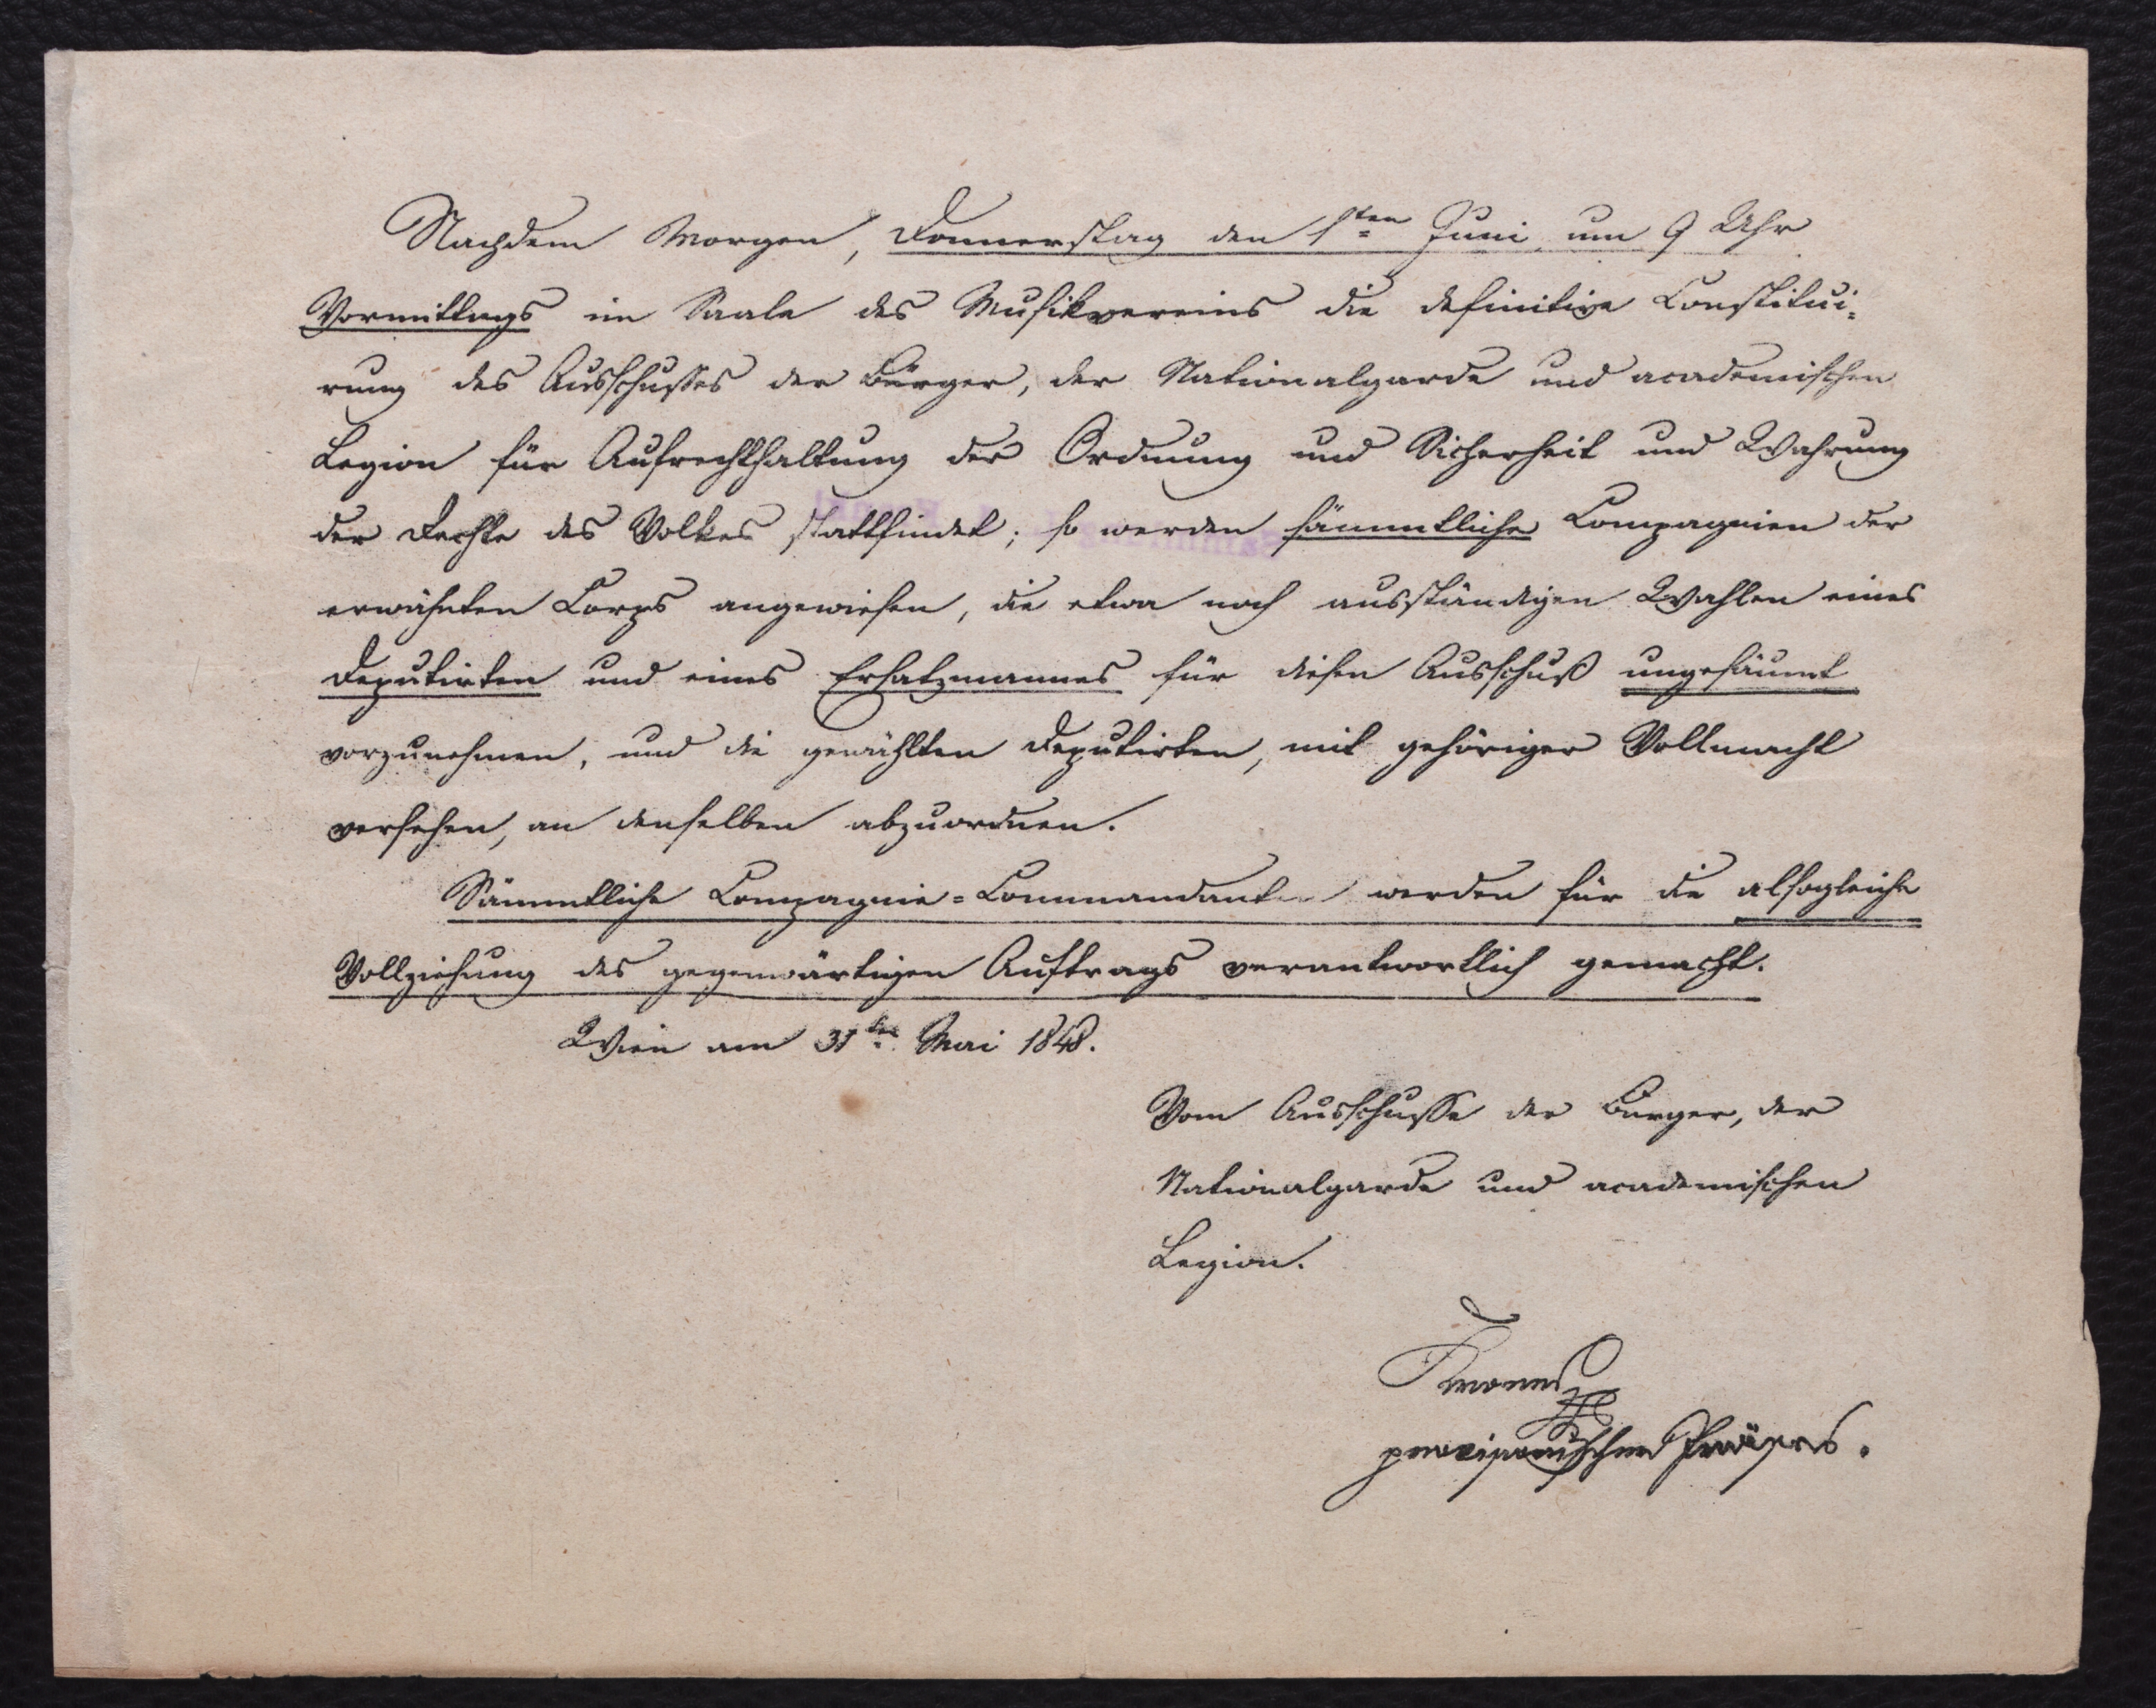 Nachdem Morgen, Donnerstag den 1ten Juni um 9 Uhr
Vormittags im Saale des Musikvereins die definitive Constitui=
rung des Ausschußes der Bürger, der Nationalgarde und academischen
Legion für Aufrechthaltung der Ordnung und Sicherheit und Wahrung
der Rechte des Volkes stattfindet; so werden sämmtliche Compagnien der
erwähnten Corps angewiesen, die etwa noch ausständigen Wahlen eines
Deputirten und eines Ersatzmannes für diesen Ausschuß ungesäumt
vorzunehmen, und die gewählten Deputirten, mit gehöriger Vollmacht
versehen, an denselben abzuordnen.
Sämmtliche Compagnie=Commandanten werden für die alsogleiche
Vollziehung des gegenwärtigen Auftrags verantwortlich gemacht.
Wien am 31ten Mai 1848.
Vom Ausschusse der Bürger, der
Nationalgarde und academischen
Legion.
provisorischer Präses.